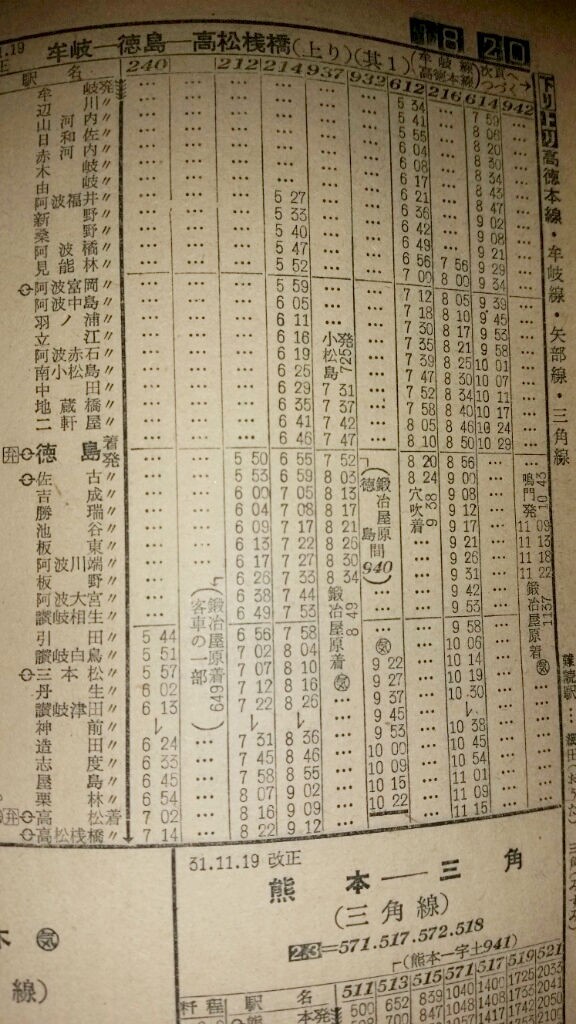 18 20
1.19 牟岐―徳島―高松桟橋(上り)(其1)(牟岐線 高徳本線)次頁へつづく→
正 駅名 240 212 214 937 932 612 216 614 942
牟岐発 … … … … … … 5 34 … 7 59 …
辺川〃 … … … … … … 5 41 … 8 06 …
山河内〃 … … … … … … 5 55 … 8 20 …
日和佐〃 … … … … … … 6 04 … 8 30 …
赤河内〃 … … … … … … 6 08 … 8 34 …
木岐〃 … … … … … … 6 17 … 8 43 …
由岐〃 … … … 5 27 … … 6 21 … 8 47 …
阿波福井〃 … … … 5 33 … … 6 36 … 9 02 …
新野〃 … … … 5 40 … … 6 42 … 9 08 …
桑野〃 … … … 5 47 … … 6 49 … 9 21 …
阿波橘〃 … … … 5 52 … … 6 56 7 56 9 29 …
見能林〃 7 00 8 00 9 34 …
阿波富岡〃 … … … 5 59 … … 7 12 8 05 9 39 …
阿波中島〃 … … … 6 05 … … 7 18 8 10 9 45 …
羽ノ浦〃 … … … 6 11 … … 7 30 8 17 9 53 …
立江〃 … … … 6 16 小松島発725 … 7 35 8 21 9 58 …
阿波赤石〃 … … … 6 19 … 7 39 8 25 10 01 …
南小松島〃 … … … 6 25 … 7 47 8 30 10 07 …
中田〃 … … … 6 29 7 31 … 7 52 8 34 10 11 …
地蔵橋〃 … … … 6 35 7 37 … 7 58 8 40 10 17 …
二軒屋〃 … … … 6 41 7 42 … 8 05 8 46 10 24 …
徳島着 … … … 6 46 7 47 … 8 10 8 50 10 29 …
発 … … 5 50 6 55 7 52 8 20 8 56 … 鳴門発10 43
佐古〃 … … 5 53 6 59 8 03 (鍛冶屋原 徳島間 940) 8 24 9 00 …
吉成〃 … … 6 00 7 05 8 13 穴吹着9 38 9 08 …
勝瑞〃 … … 6 04 7 08 8 17 9 12 … 11 09
池谷〃 … … 6 09 7 17 8 21 9 17 … 11 13
板東〃 … … 6 13 7 22 8 26 9 21 … 11 18
阿波川端〃 … … 6 17 7 27 8 30 9 26 … 11 22
板野〃 … 6 26 7 33 8 34 9 31 … 鍛冶屋原着1137
阿波大宮〃 … 6 38 7 44 鍛冶屋原着8 49 9 42 …
讃岐相生〃 … 6 49 7 53 9 53 …
引田〃 5 44 客車の一部(鍛冶屋原着649) 6 56 7 58 ㊋ 9 58
讃岐白鳥〃 5 51 7 02 8 04 9 22 … 10 06
三本松〃 5 57 7 07 8 10 9 27 … 10 14
丹生〃 6 02 7 12 8 16 9 37 … 10 19
讃岐津田〃 6 13 7 22 8 26 9 45 … 10 30
神前〃 レ … レ レ … 9 53 … レ
造田〃 6 24 … 7 31 8 36 … 10 00 … 10 38
志度〃 6 33 … 7 45 8 46 … 10 09 … 10 45
屋島〃 6 45 … 7 58 8 55 … 10 15 … 10 54
栗林〃 6 54 … 8 07 9 02 … 10 22 … 11 01
高松着 7 02 … 8 16 9 09 … 11 09
高松桟橋〃 7 14 … 8 22 9 12 … 11 15
下り上り 高徳本線・牟岐線・矢部線・三角線
31.11.19 改正
熊本―三角
(三角線)
2.3=571.517.572.518
(熊本―宇土941)
粁程 駅名 511 513 515 571 517 519 521
熊本発 500 652 839 1040 1400 1725 2033
線)